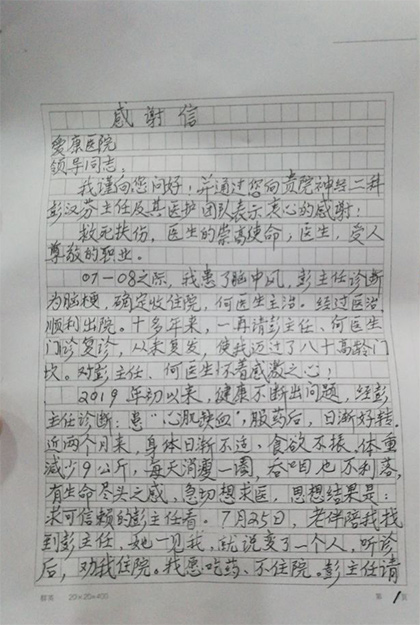 感谢信
爱康医院
领导同志：
我谨向您问好！并通过您向贵院神经二科
彭汉芬主任及其医护团队表示衷心的感谢！
救死扶伤，医生的崇高使命，医生，受人
尊敬的职业。
07-08之际，我患了脑中风，彭主任诊断
为脑梗，确定收住院，何医生主治。经过医治，
顺利出院。十多年来，一再请彭主任、何医生
门诊复诊，从未复发，使我迈过了八十高龄门
坎。对彭主任、何医生怀着感激之心！
2019年初以来，健康不断出问题，经彭
主任诊断：患“心肌缺血”，服药后，日渐好转。
近两个月来，身体日渐不适、食欲不振、体重
减少9公斤，每天消瘦一圈，吞咽也不利落，
有生命尽头之感，急切想求医，思想结果是：
求可信赖的彭主任看。7月25日，老伴陪我找
到彭主任，她一见我，就说变了一个人，听诊
后，劝我住院。我愿吃药、不住院。彭主任请
20×20=400
第1页